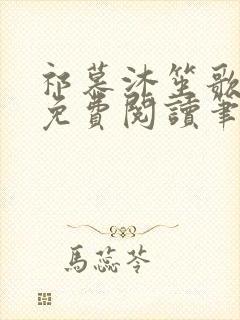 祁慕沐笙歌
免費閱讀筆
馬蕊苓